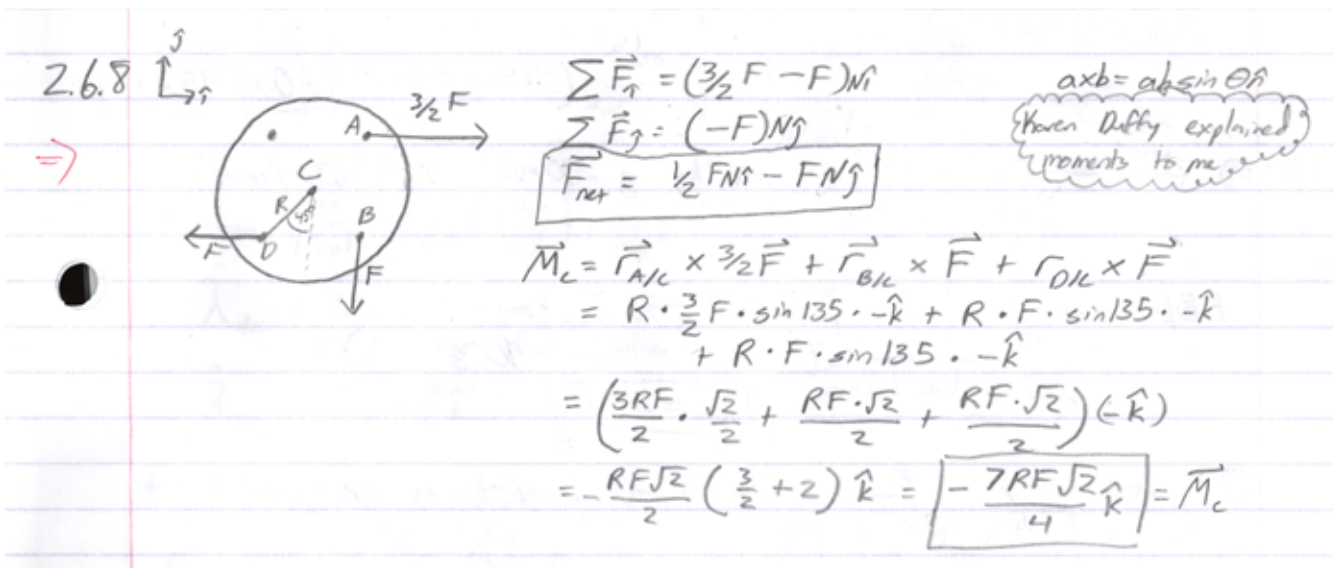 2.6.8
ĵ
î
3/2 F
A
C
R
45°
B
D
F
F
∑ F⃗î = (3/2 F - F)Nî
∑ F⃗ĵ = (-F)Nĵ
F⃗net = 1/2 FNî - FNĵ
axb = ab sin θ n̂
Karen Duffy explained
moments to me
M⃗c = r⃗A/C × 3/2 F⃗ + r⃗B/C × F⃗ + rD/C × F⃗
= R · 3/2 F · sin 135 · -k̂ + R · F · sin135 · -k̂
+ R · F · sin 135 · -k̂
= (3RF/2 · √2/2 + RF·√2/2 + RF·√2/2)(-k̂)
= - RF√2/2 (3/2 + 2) k̂ = - 7RF√2/4 k̂ = M⃗c